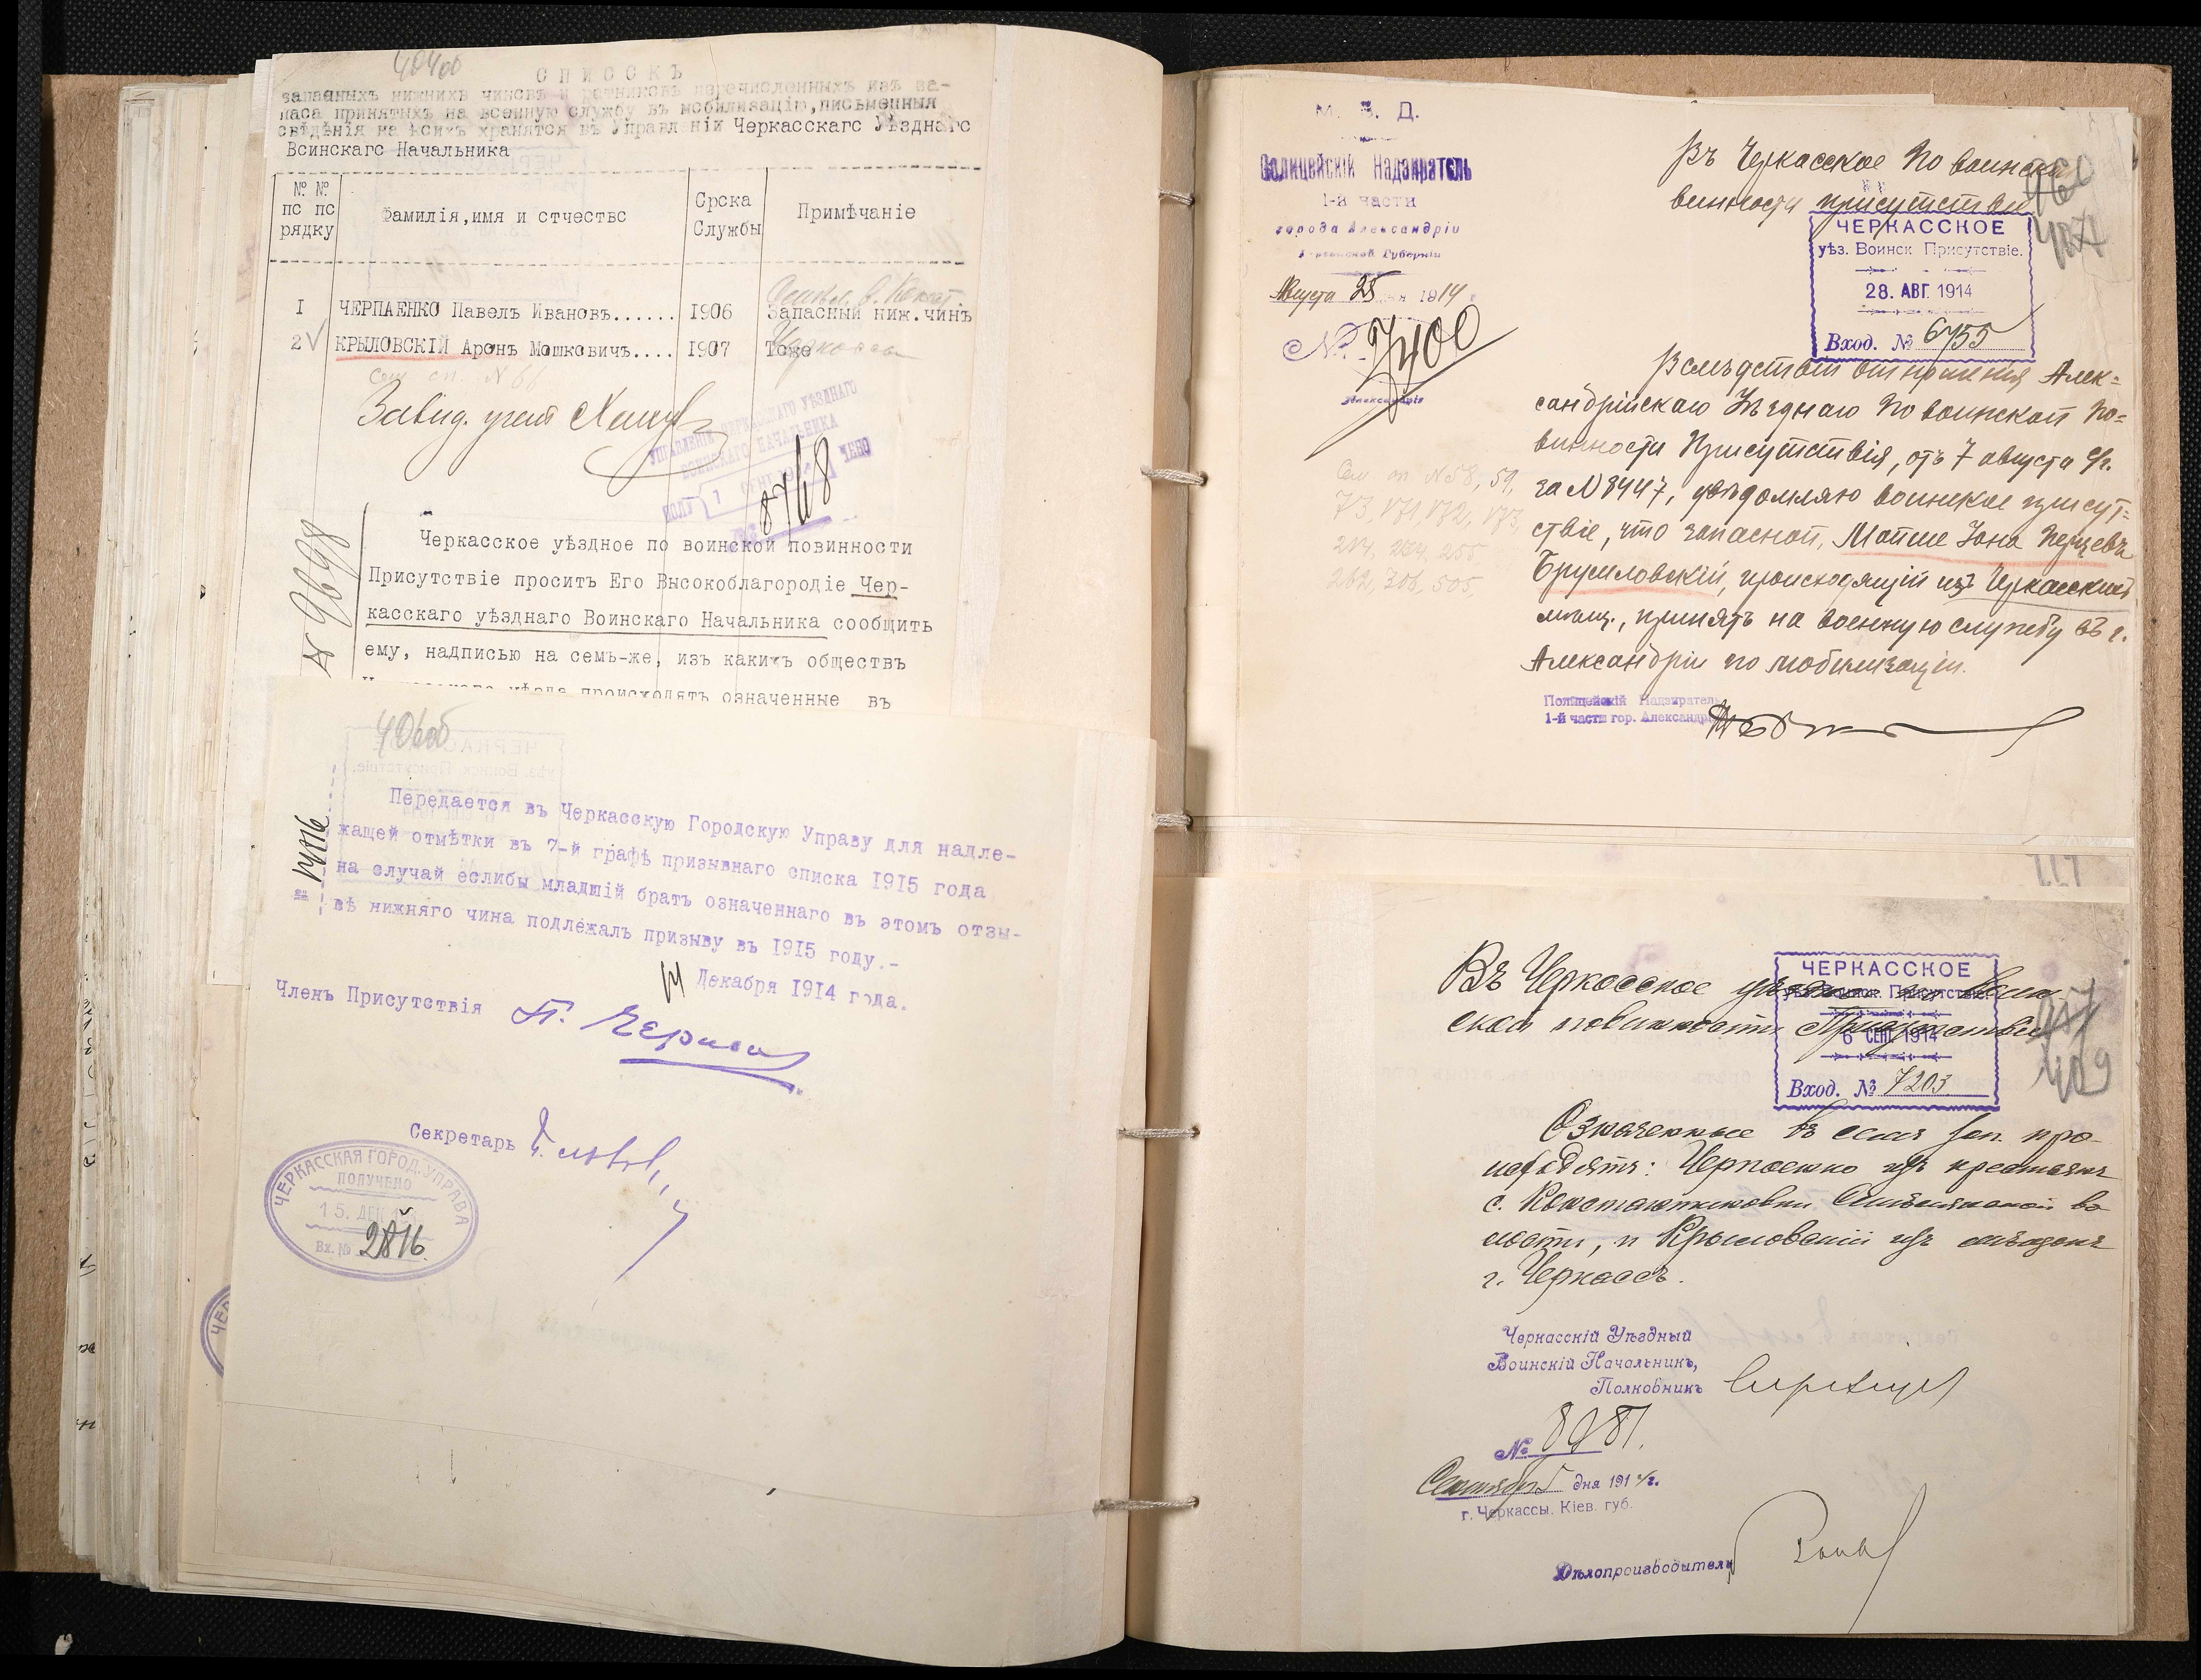 404об
СПИСОКЪ
запасныхъ нижнихъ чиновъ и ратниковъ перечисленныхъ изъ за-
паса принятыхъ на военную службу въ мобилизацію, письменныя
свѣдѣнія на коихъ хранятся въ Управленіи Черкасскаго Уѣзднаго
Воинскаго Начальника
№ № по порядку
Фамилія, имя и отчество
Срока Службы
Примѣчаніе
1 ЧЕРПАЕНКО Павелъ Ивановъ...... 1906 Запасный ниж.чинъ
2 КРЫЛОВСКІЙ Аронъ Мошковичъ.... 1907 Тоже
Черкассы
Сем. сп. № 66
Завѣд. учет.
УПРАВЛЕНІЕ ЧЕРКАССКАГО УѢЗДНАГО
ВОИНСКАГО НАЧАЛЬНИКА
8768
№ 9698
Черкасское уѣздное по воинской повинности
Присутствіе проситъ Его Высокоблагородіе Чер-
касскаго уѣзднаго Воинскаго Начальника сообщить
ему, надписью на семъ-же, изъ какихъ обществъ
Черкасскаго уѣзда происходятъ означенные въ
406об
Передается въ Черкасскую Городскую Управу для надле-
жащей отмѣтки въ 7-й графѣ призывнаго списка 1915 года
на случай еслибы младшій братъ означеннаго въ этомъ отзы-
вѣ нижняго чина подлежалъ призыву въ 1915 году.-
14 Декабря 1914 года.
Членъ Присутствія
Секретарь
ЧЕРКАССКАЯ ГОРОД. УПРАВА
ПОЛУЧЕНО
15. ДЕК
Вх. № 2816
М. В. Д.
Полицейскій Надзиратель
1-й части
города Александріи
Херсонской Губерніи
Августа 25 дня 1914
№ 7400
Александрія
Въ Черкасское по воинской
винности присутствіе
ЧЕРКАССКОЕ
уѣз. Воинск. Присутствіе.
28. АВГ. 1914
Вход. № 6755
Вслѣдствіи отношенія Алек-
сандрійскаго Уѣзднаго по воинской по-
винности Присутствія, отъ 7 августа с/г.
за № 8447, увѣдомляю воинское присут-
ствіе, что запасной, Мошие Іона Перцевъ
Бруиловскій, происходящій изъ Черкасскихъ
мѣщ., принятъ на военную службу въ г.
Александріи по мобилизаціи.
Сем. сп. № 58, 59,
73, 171, 172, 173,
Полицейскій Надзиратель
1-й части гор. Александріи
Въ Черкасское уѣздное по воин-
ской повинности Присутствіе
ЧЕРКАССКОЕ
уѣз. Воинск. Присутствіе.
6 СЕН. 1914
Вход. № 7203
407
409
Означенные въ семъ зап. про-
исходятъ: Черпаенко изъ крестьянъ
с. Константиновки Смѣлянской во-
лости, и Крыловскій изъ мѣщанъ
г. Черкассъ.
Черкасскій Уѣздный
Воинскій Начальникъ,
Полковникъ
№ 8981.
Сентября 5 дня 1914 г.
г. Черкассы. Кіев. губ.
Дѣлопроизводитель